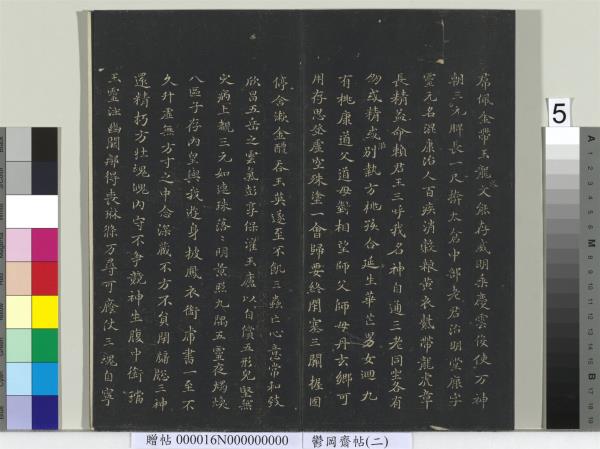 帬佩金帶玉龍文能存威明乘慶雲役使万神
朝三元脾長一尺掩太倉中部老君治明堂厥字
靈元名混康治人百疾消穀粮黃衣紫帶龍虎章
長精益命賴君王三呼我名神自通三老同坐各有
朋或精或別執方桃孩合延生華芒男女迴九
有桃康道父道母對相望師父師母丹玄鄉可
用存思登虛空殊塗一會歸要終閉塞三關握固
停含漱金醴吞玉英遂至不飢三蟲亡心意常和致
欣昌五岳之雲氣彭亨保灌玉廬以自償五形完堅無
灾病上覩三元如連珠落々明景照九隅五靈夜燭煥
八區子存內皇與我遊身披鳳衣銜虎書一至不
久升虛無方寸之中念深藏不方不員閉牖牕三神
還精朽方壯魂魄內守不爭競神生腹中銜璫
玉靈注幽闕那得喪琳條万尋可廕仗三魂自寧
5
贈帖 000016N000000000 鬱岡齋帖(二)